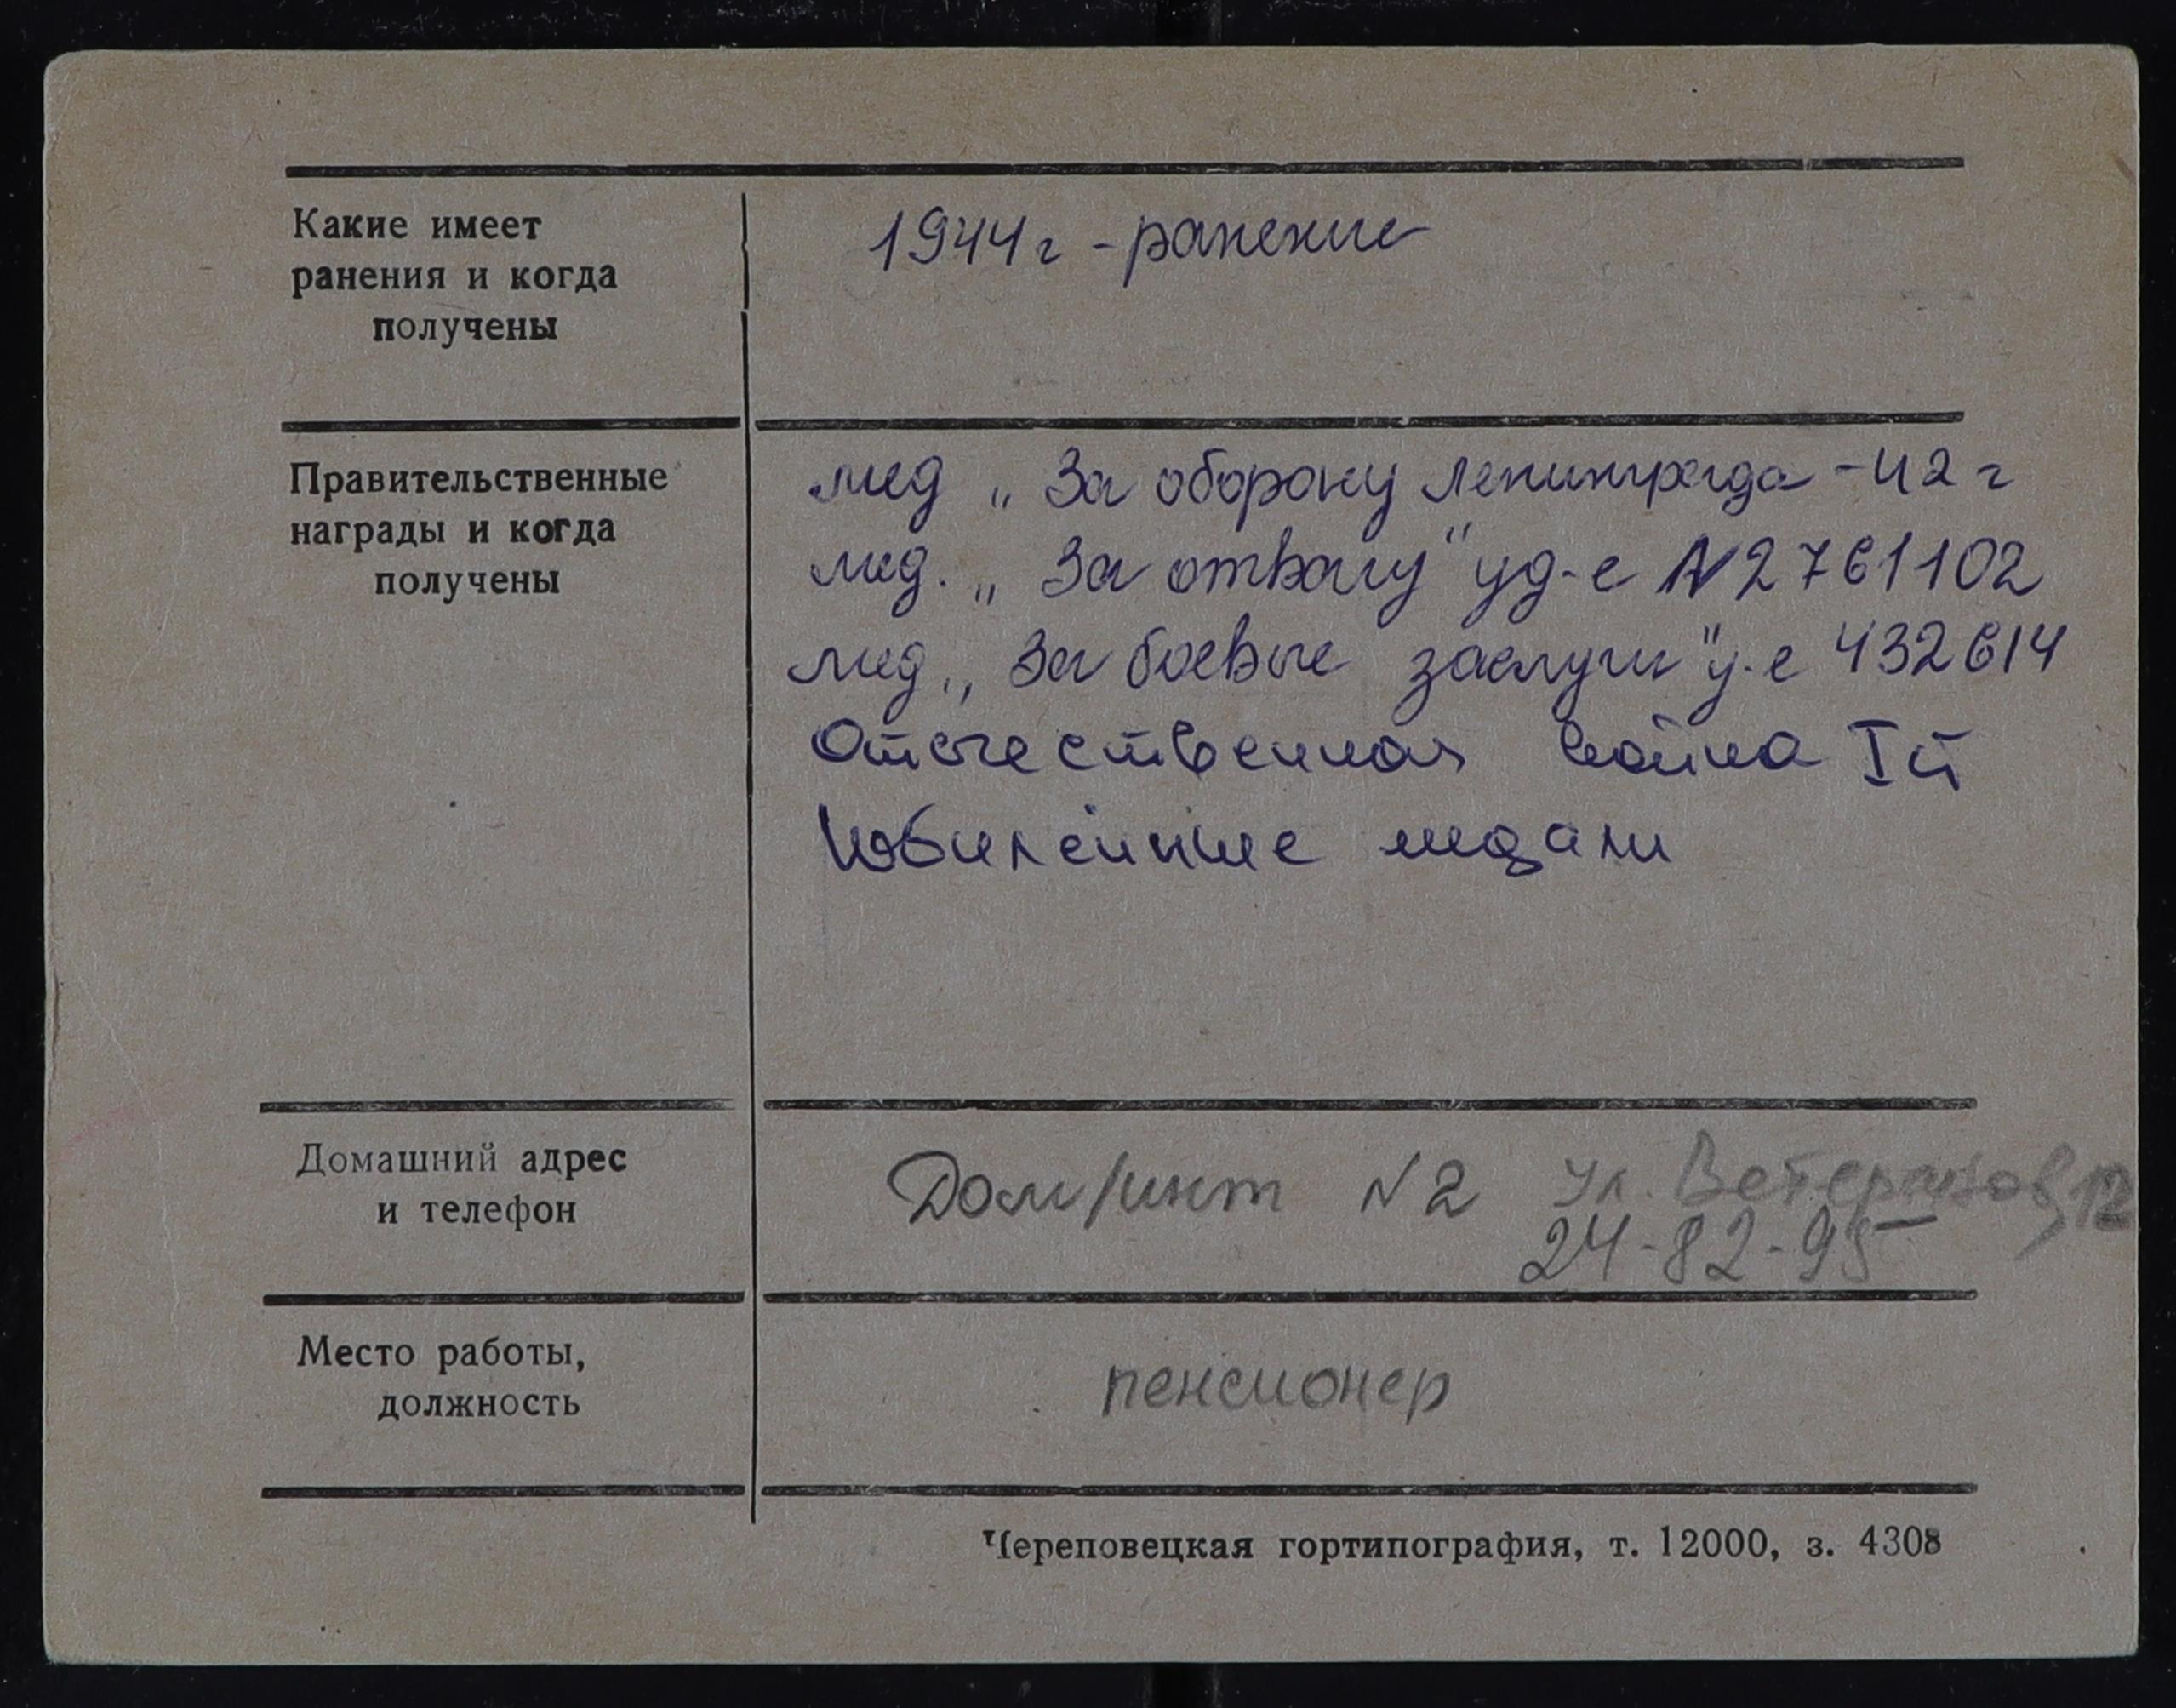 Какие имеет
ранения и когда
получены
1944 г - ранение
Правительственные
награды и когда
получены
мед „ За оборону Ленинграда - 42 г
мед. „ За отвагу" уд-е N 2761102
мед „ За боевые заслуги" у-е 432614
Отечественная война I ст
Юбилейные медали
Домашний адрес
и телефон
Дом/инт N 2 ул. Ветеранов, 12
24-82-95
Место работы,
должность
пенсионер
Череповецкая гортипография, т. 12000, з. 4308